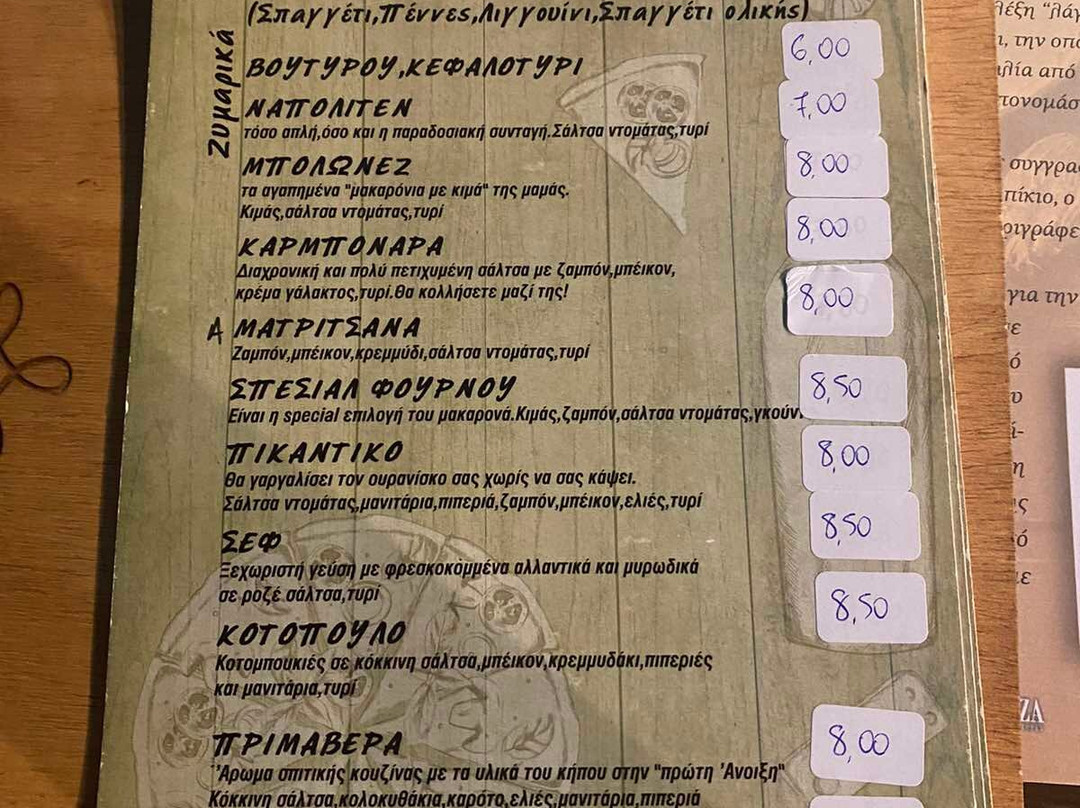 (Σπαγγέτι,Πέννες,Λιγγουίνι,Σπαγγέτι ολικής)
Ζυμαρικά
ΒΟΥΤΥΡΟΥ,ΚΕΦΑΛΟΤΥΡΙ 6,00
ΝΑΠΟΛΙΤΕΝ 7,00
τόσο απλή,όσο και η παραδοσιακή συνταγή.Σάλτσα ντομάτας,τυρί
ΜΠΟΛΩΝΕΖ 8,00
τα αγαπημένα "μακαρόνια με κιμά" της μαμάς.
Κιμάς,σάλτσα ντομάτας,τυρί
ΚΑΡΜΠΟΝΑΡΑ 8,00
Διαχρονική και πολύ πετιχυμένη σάλτσα με ζαμπόν,μπέικον,
κρέμα γάλακτος,τυρί.Θα κολλήσετε μαζί της!
8,00
Α ΜΑΤΡΙΤΣΑΝΑ
Ζαμπόν,μπέικον,κρεμμύδι,σάλτσα ντομάτας,τυρί
ΣΠΕΣΙΑΛ ΦΟΥΡΝΟΥ 8,50
Είναι η special επιλογή του μακαρονά.Κιμάς,ζαμπόν,σάλτσα ντομάτας,γκούν
ΠΙΚΑΝΤΙΚΟ 8,00
Θα γαργαλίσει τον ουρανίσκο σας χωρίς να σας κάψει.
Σάλτσα ντομάτας,μανιτάρια,πιπεριά,ζαμπόν,μπέικον,ελιές,τυρί
ΣΕΦ 8,50
Ξεχωριστή γεύση με φρεσκοκομμένα αλλαντικά και μυρωδικά
σε ροζέ σάλτσα,τυρί
ΚΟΤΟΠΟΥΛΟ 8,50
Κοτομπουκιές σε κόκκινη σάλτσα,μπέικον,κρεμμυδάκι,πιπεριές
και μανιτάρια,τυρί
ΠΡΙΜΑΒΕΡΑ 8,00
'Αρωμα σπιτικής κουζίνας με τα υλικά του κήπου στην "πρώτη 'Ανοιξη"
Κόκκινη σάλτσα,κολοκυθάκια,καρότο,ελιές,μανιτάρια,πιπεριά
λέξη "λάγ
ι, την οπο
λία από
τονομάσ
συγγρα
πίκιο, ο
ριγράφε
για την
ZA